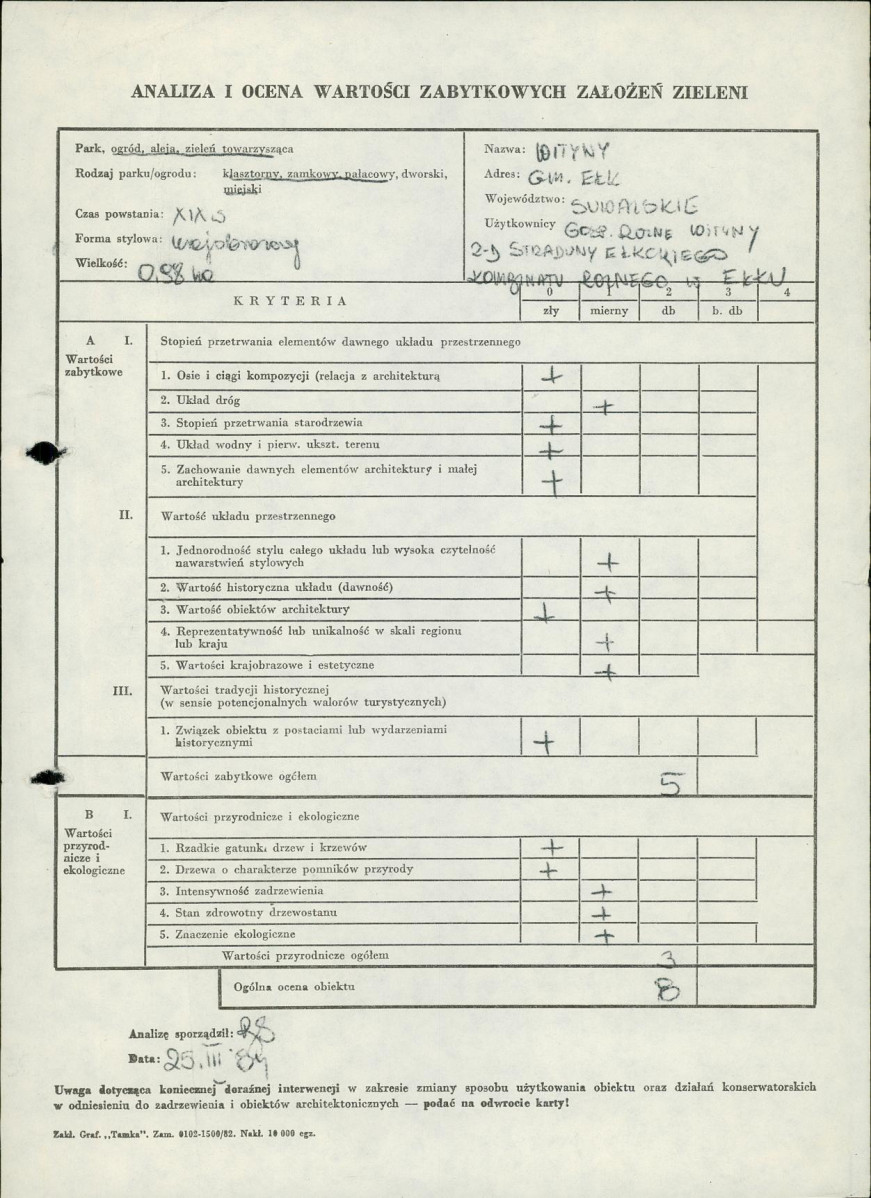 ANALIZA I OCENA WARTOŚCI ZABYTKOWYCH ZAŁOŻEŃ ZIELENI
Park, ogród, aleja, zieleń towarzysząca
Rodzaj parku/ogrodu: klasztorny, zamkowy, pałacowy, dworski,
miejski
Czas powstania: XIX w
Forma stylowa: krajobrazowy
Wielkość: 0,98 ha
Nazwa: WITYNY
Adres: GM. EŁK
Województwo: SUWALSKIE
Użytkownicy GOSP. ROLNE WITYNY
Z-D STRADUNY EŁKCKIEGO
KOMBINATU ROLNEGO W EŁKU
KRYTERIA
0 1 2 3 4
zły mierny db b. db
A I. Stopień przetrwania elementów dawnego układu przestrzennego
Wartości
zabytkowe
1. Osie i ciągi kompozycji (relacja z architekturą +
2. Układ dróg +
3. Stopień przetrwania starodrzewia +
4. Układ wodny i pierw. ukszt. terenu +
5. Zachowanie dawnych elementów architektury i małej
architektury +
II. Wartość układu przestrzennego
1. Jednorodność stylu całego układu lub wysoka czytelność
nawarstwień stylowych +
2. Wartość historyczna układu (dawność) +
3. Wartość obiektów architektury +
4. Reprezentatywność lub unikalność w skali regionu
lub kraju +
5. Wartości krajobrazowe i estetyczne +
III. Wartości tradycji historycznej
(w sensie potencjonalnych walorów turystycznych)
1. Związek obiektu z postaciami lub wydarzeniami
historycznymi +
Wartości zabytkowe ogółem 5
B I. Wartości przyrodnicze i ekologiczne
Wartości
przyrod-
nicze i
ekologiczne
1. Rzadkie gatunki drzew i krzewów +
2. Drzewa o charakterze pomników przyrody +
3. Intensywność zadrzewienia +
4. Stan zdrowotny drzewostanu +
5. Znaczenie ekologiczne +
Wartości przyrodnicze ogółem 3
Ogólna ocena obiektu 8
Analizę sporządził:
Data: 25.III '84
Uwaga dotycząca koniecznej doraźnej interwencji w zakresie zmiany sposobu użytkowania obiektu oraz działań konserwatorskich
w odniesieniu do zadrzewienia i obiektów architektonicznych — podać na odwrocie karty!
Zakł. Graf. „Tamka”. Zam. 0102-1500/82. Nakł. 10 000 egz.